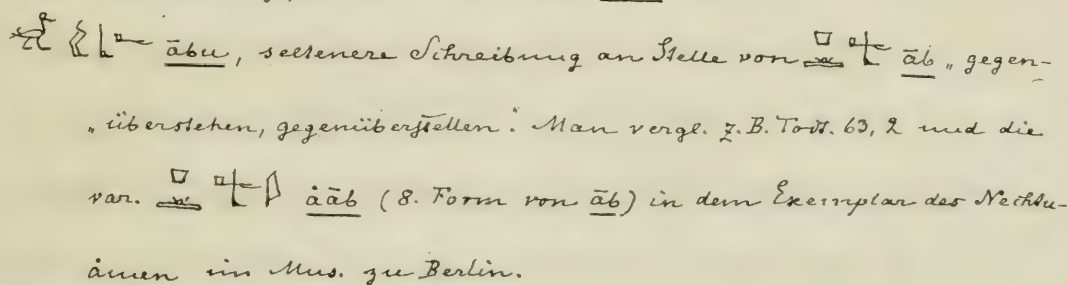 ābu, seltenere Schreibung an Stelle von āb „gegen-
„überstehen, gegenüberstellen“. Man vergl. z. B. Todt. 63, 2 und die
var. åāb (8. Form von āb) in dem Exemplar des Nechtu-
åmen im Mus. zu Berlin.